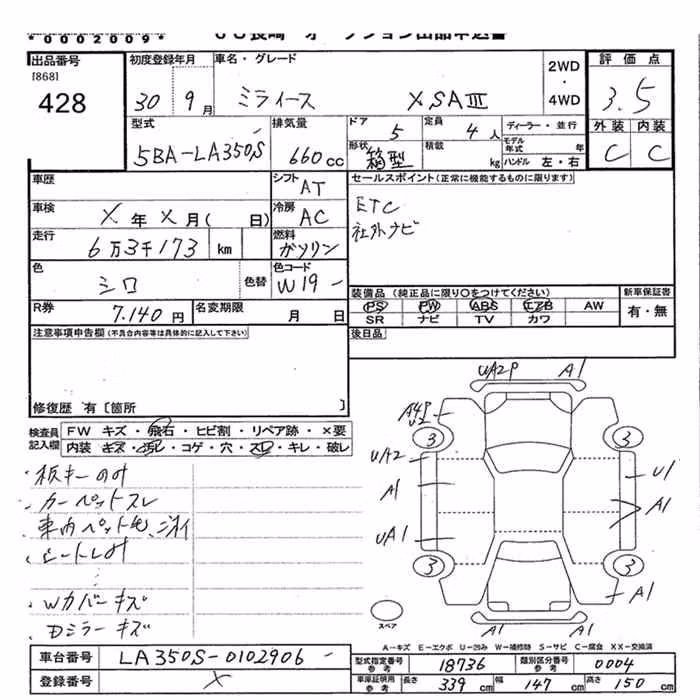 *0002009*
ＪＵ長崎 オークション出品申込書
出品番号
[868]
428
初度登録年月
30年 9月
車名・グレード
ミライース X,SAIII
2WD
・
4WD
評価点
3.5
型式
5BA-LA350S
排気量
660cc
ドア
5
定員
4人
ディーラー・並行
外装 内装
C C
形状
箱型
積載
kg
モデル年式 年
ハンドル 左・右
車歴
シフト
AT
セールスポイント(正常に機能するものに限ります)
ETC
社外ナビ
車検
X年X月( 日)
冷房
AC
走行
6万3千173 km
燃料
ガソリン
色
シロ
色替
色コード
W19-
装備品 (純正品に限り○をつけてください)
新車保証書
PS PW ABS エアB AW
有・無
SR ナビ TV カワ
R券
7.140円
名変期限 月 日
注意事項申告欄(不具合内容等は具体的に記入して下さい)
後日品
修復歴 有 [箇所 ]
検査員
記入欄
FW キズ・飛石・ヒビ割・リペア跡・×要
内装 キズ・汚れ・コゲ・穴・スレ・キレ・破レ
・板キーのみ
・カーペットスレ
・車内ペット毛、ニオイ
・シートしみ
・Wカバーキズ
・Dミラーキズ
UA2P A1
A4P
U2
3 3
UA2 U1
A1 A1
UA1
3 3
A1
スペア
A1 A1
A－キズ E－エクボ U－凹み W－補修跡 S－サビ C－腐食 XX－交換済
車台番号
LA350S-0102906-
型式指定番号
参考
18736
類別区分番号
参考
0004
登録番号
X
車庫証明用
参考
長さ 339cm 幅 147cm 高さ 150cm